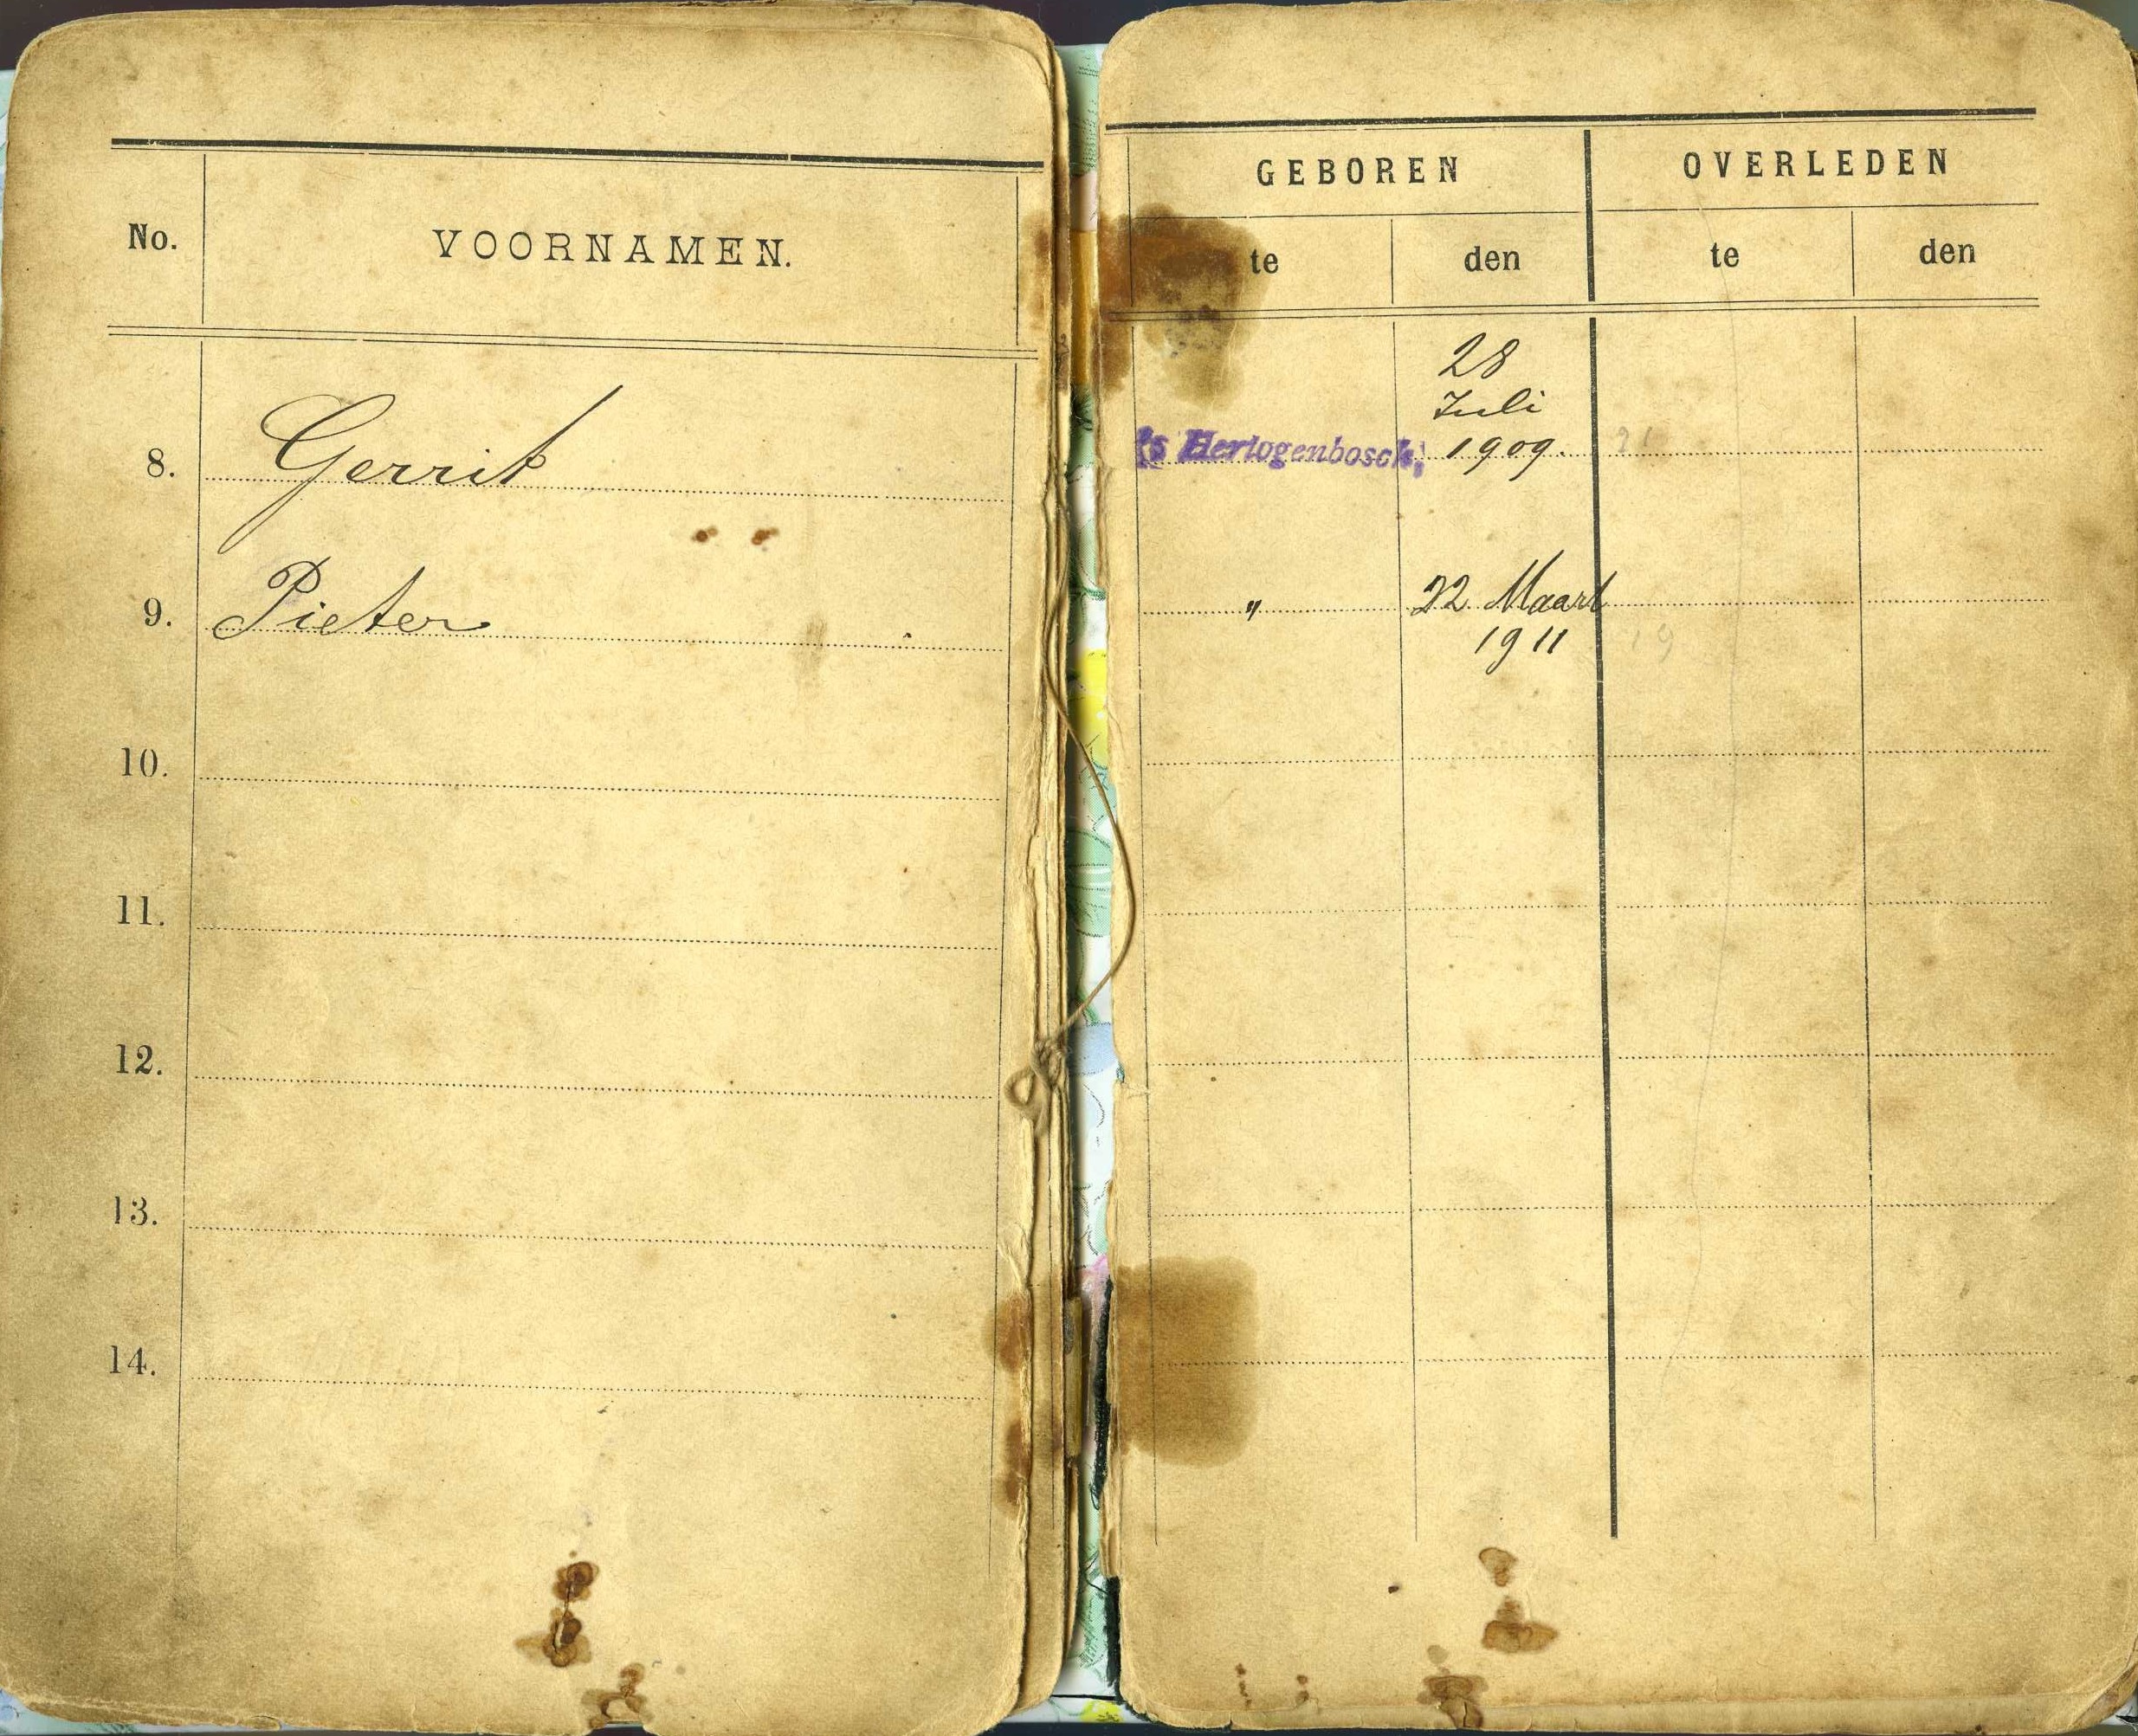 No. VOORNAMEN.
8. Gerrit
9. Pieter
10.
11.
12.
13.
14.
GEBOREN OVERLEDEN
te den te den
28
Juli
's Hertogenbosch 1909.
" 22 Maart
1911 19